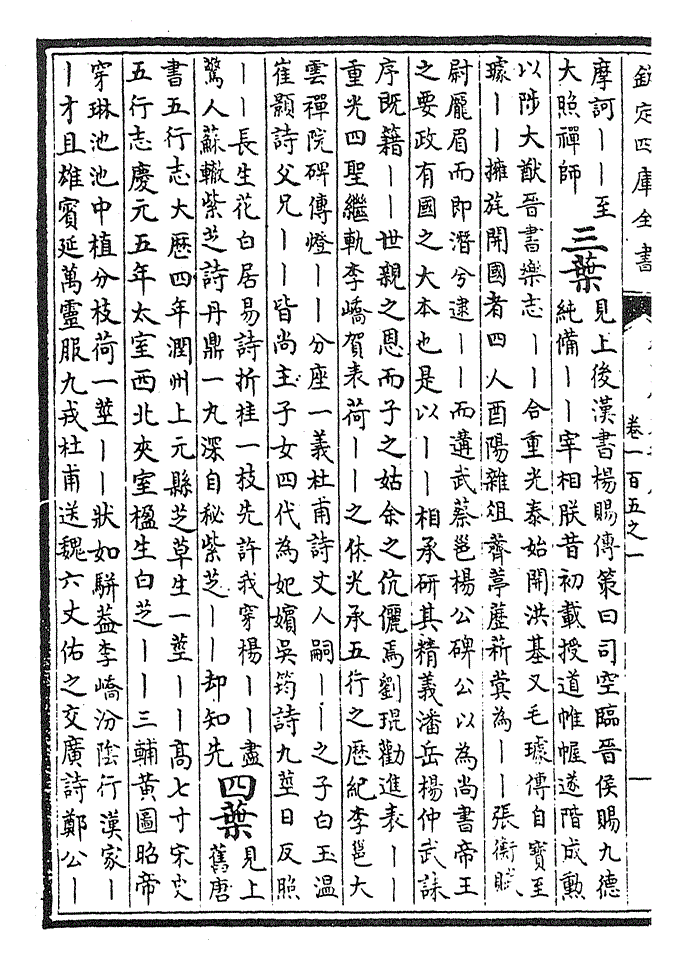 欽定四庫全書
卷一百五之一
摩訶丨丨至
大照禪師
三葉
見上後漢書楊賜傳策曰司空臨晉侯賜九德
純備丨丨宰相朕昔初載授道帷幄遂階成勲
以陟大猷晉書樂志丨丨合重光泰始開洪基又毛璩傳自寶至
璩丨丨擁旄開國者四人酉陽雜俎薺葶藶菥蓂為丨丨張衡賦
尉龎眉而即潛兮逮丨丨而遘武蔡邕楊公碑公以為尚書帝王
之要政有國之大本也是以丨丨相承研其精義潘岳楊仲武誄
序既籍丨丨世親之恩而子之姑余之伉儷焉劉琨勸進表丨丨
重光四聖繼軌李嶠賀表荷丨丨之休光承五行之歴紀李邕大
雲禪院碑傳燈丨丨分座一義杜甫詩丈人嗣丨丨之子白玉温
崔顥詩父兄丨丨皆尚主子女四代為妃嬪吳筠詩九莖日反照
丨丨長生花白居易詩折桂一枝先許我穿楊丨丨盡
驚人蘇轍紫芝詩丹鼎一九深自秘紫芝丨丨却知先
四葉
見上
舊唐
書五行志大歴四年潤州上元縣芝草生一莖丨丨高七寸宋史
五行志慶元五年太室西北夾室楹生白芝丨丨三輔黄圖昭帝
穿琳池池中植分枝荷一莖丨丨狀如駢葢李嶠汾陰行漢家丨
丨才且雄賓延萬靈服九戎杜甫送魏六丈佑之交廣詩鄭公丨